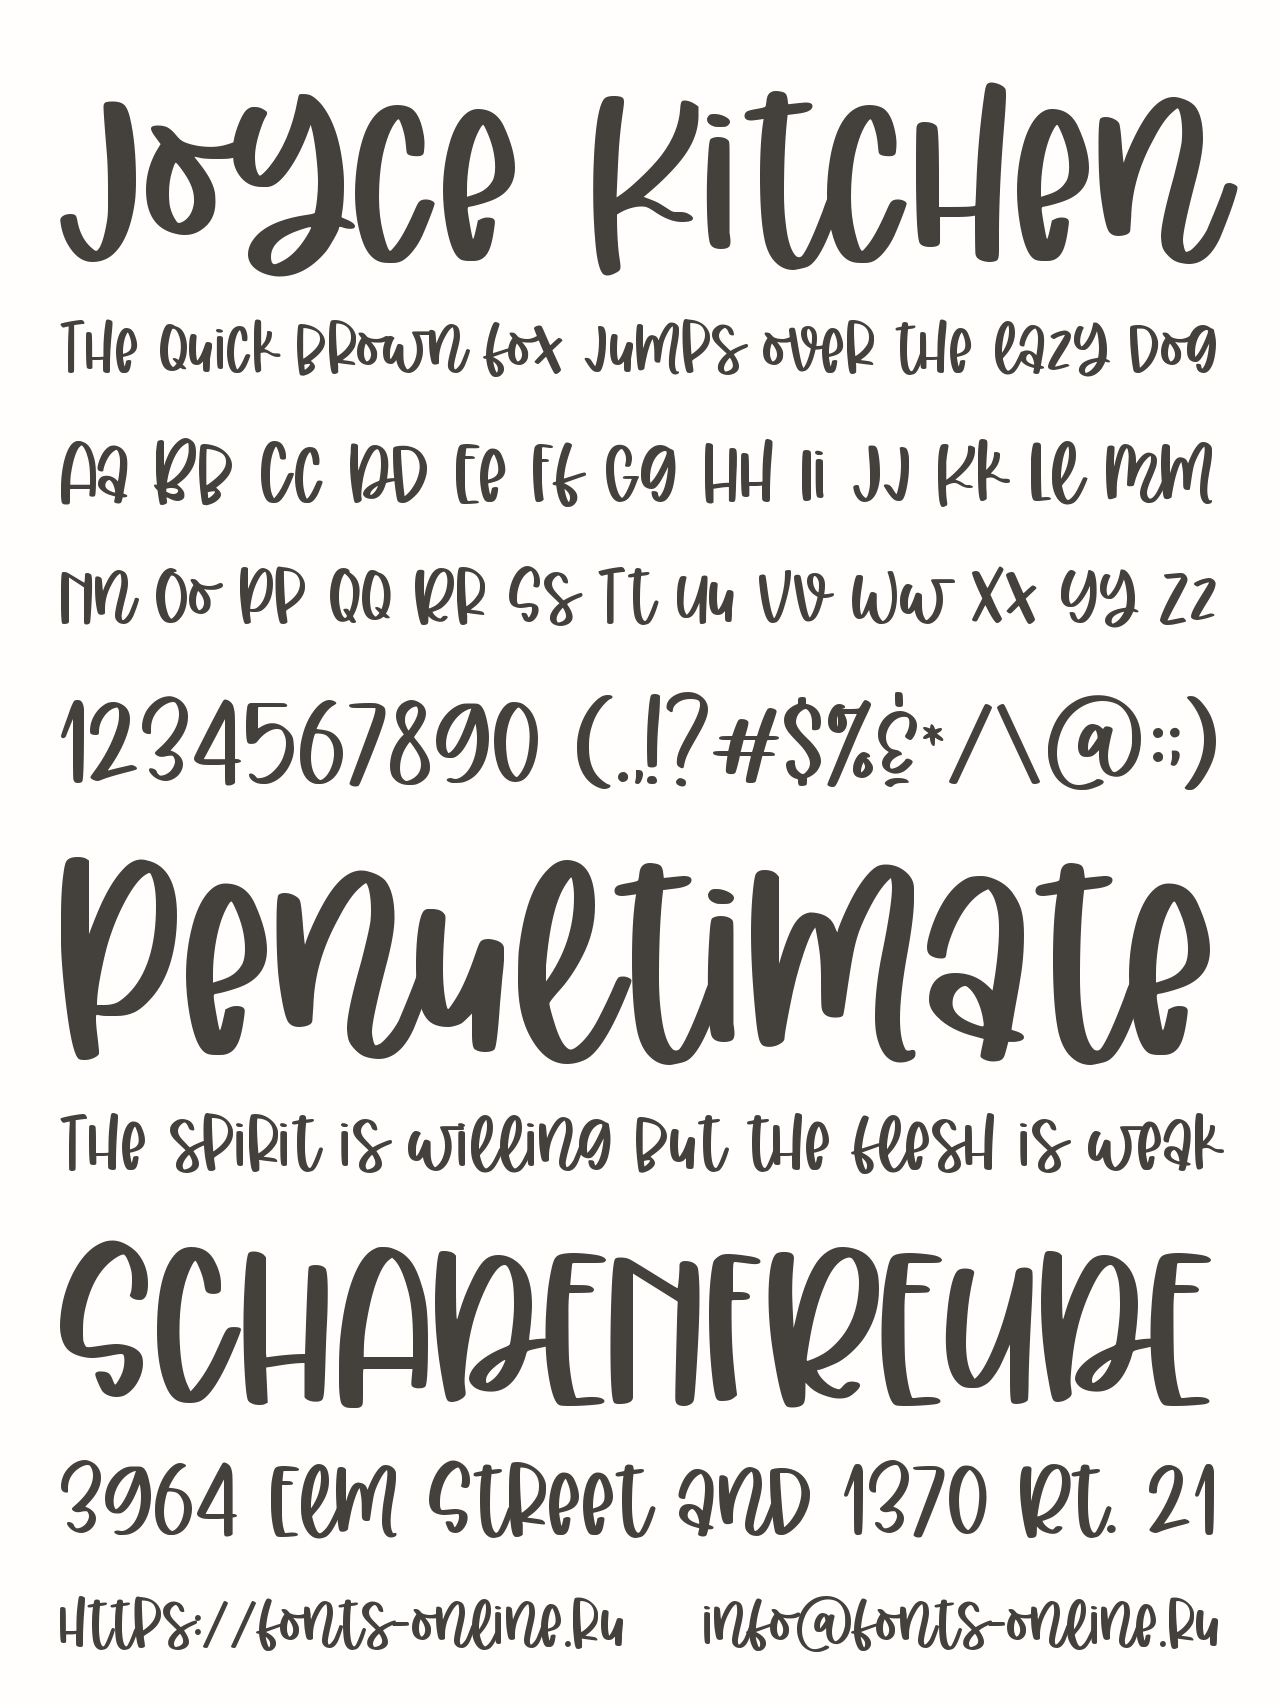 Joyce Kitchen
The quick brown fox jumps over the lazy dog
Aa Bb Cc Dd Ee Ff Gg Hh Ii Jj Kk Ll Mm
Nn Oo Pp Qq Rr Ss Tt Uu Vv Ww Xx Yy Zz
1234567890 (.,!?#$%&*/\@:;)
Penultimate
The spirit is willing but the flesh is weak
SCHADENFREUDE
3964 Elm Street and 1370 Rt. 21
https://fonts-online.ru info@fonts-online.ru